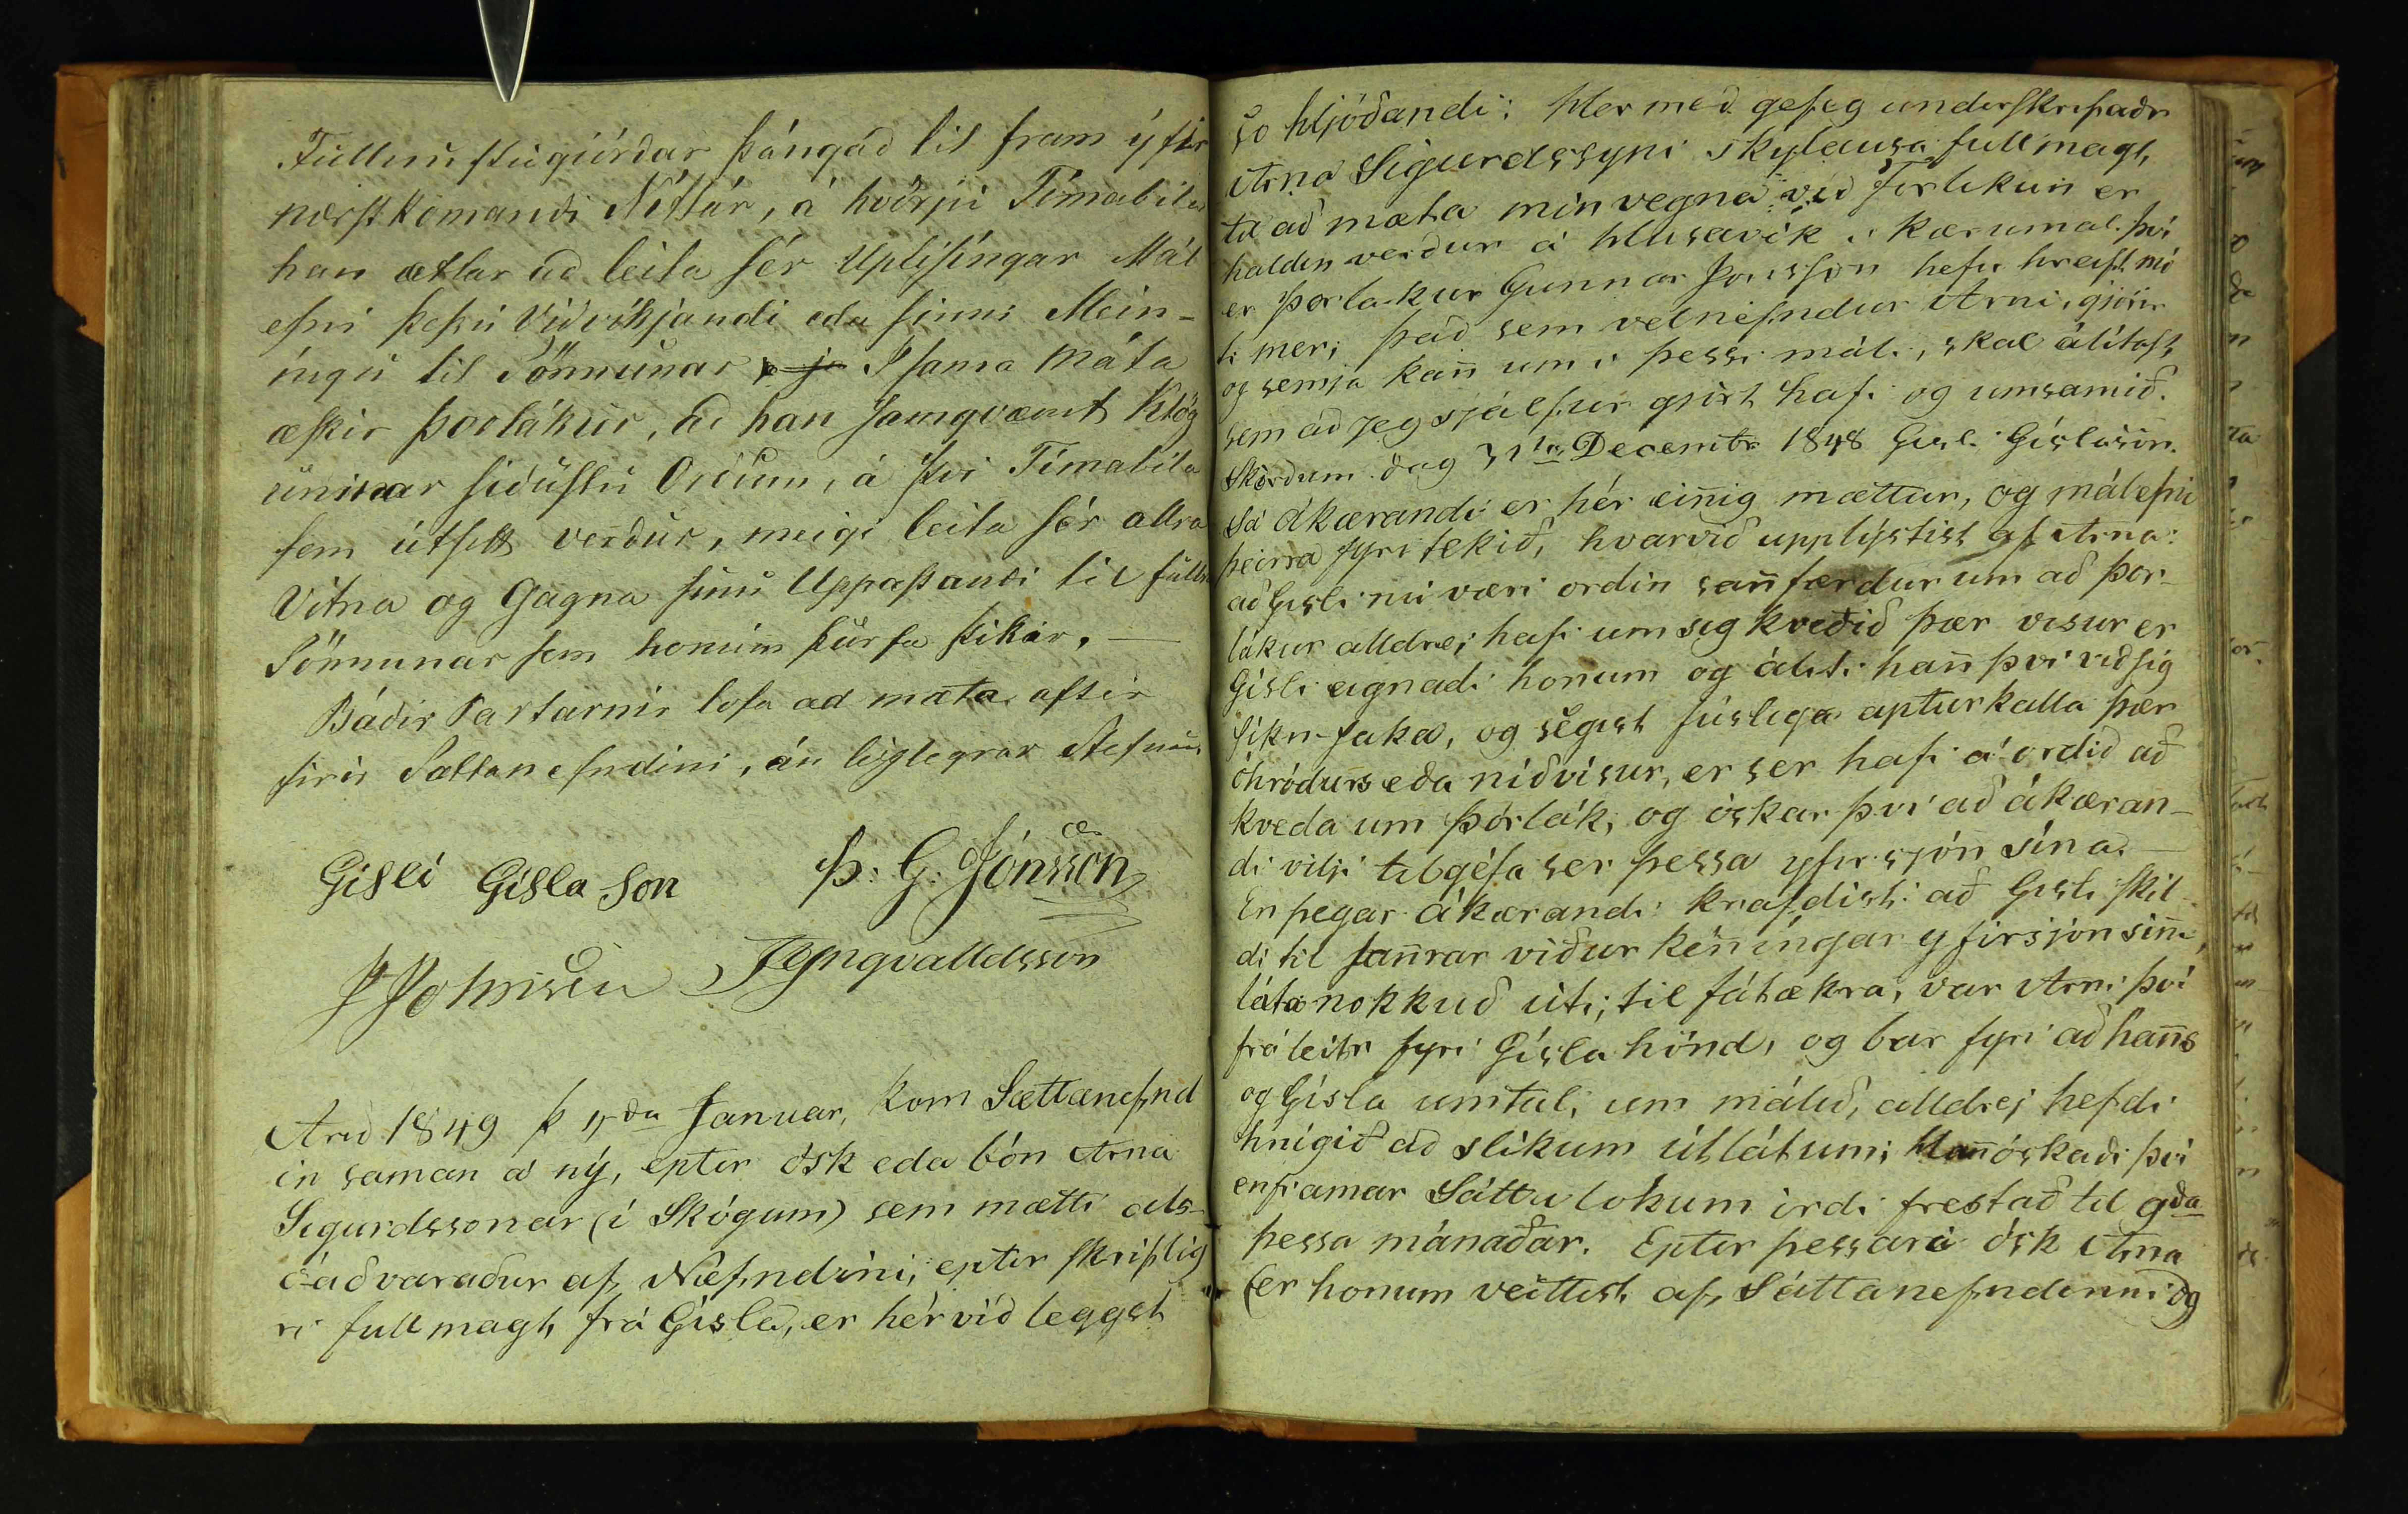 Fullnustugiørdar þángad til fram ýfir
nærstkomandi Níttár, á hvörju Tímabili
han ætlar ad leita sér Uplísíngar Mál
efni þessu Viðvíkjandi eda sinni Mein-
íngu til Sönnunar I sama máta
æskir Þorlákur, ad han samqvæmt Klög
unnar síðustu Ordum, á því Tímabile
sem útsett verður, meigi leita sér allra
Vitna og Gagna sínu Uppástandi til fulls
Sönnunar sem honum þurfa þikir. —
Báðir Partarnir lofa ad mæta aftir
firir Sáttanefndini, án líglegrar Stefnu
Gisli Gisla son Þ: G. Jónsson
JJohnsen JIngvalldsson
Arid 1849 þ 4da Januar, kom Sættanefnd
in saman á ný, epter ósk eda bón Arna
Sigurdssonar (i Skógum) sem mætti als-
óaðvaraður af Nefndini, epter skriflig
ri fullmagt frá Gísla, er hérvið leggst
so hljóðandi: Her með gef eg underskrifaðr
Arna Sigurdssyni skylausa fullmagt,
til að mæta min vegna við Forlikun er
haldin verður á Husavík i kærumal. því
er Þorlakur Gunnar Jonsson hefur hreift mó
ti mer; það sem velnefndur Arni, gjörir
og semja kann um i þessi máli, skal álitast
sem að jeg sjálfur gjört hafi og umsamið.
Skörðum dag 31ta Decembr 1848 Gisli Gíslason.
Sá ákærandi er hér einnig mættur, og málefni
þeirra fyri tekið, hvarvið upplýstist af Arna:
að Gisli nú væri ordin sannfærdur um að Þor-
lákur alldrej hafi um sig kveðið þær visur er
Gísli eignadi honum og áliti hann því við sig
síkn-saka, og segist fúslega apturkalla þær
óhróðurs eða níðvísur, er ser hafi á ordið að
kveda um Þórlák, og óskar því að ákæran-
di vilji tilgéfa ser þessa yfirsjón sína. —
En þegar ákærandi krafdist að Gisli skil-
di til sannrar viðurkenníngar yfirsjón sinne,
láta nokkuð úti; til fátækra, var Arni því
fráleitr fyri Gísla hönd, og bar fyri að hanns
og Gísla umtali um málið, alldrej hefdi
hnigið að slíkum útlátum; Hann óskaði því
enframar Sáttu lokum irdi frestað til 9da
þessa mánaðar. Epter þessari ósk Arna
(er honum veittist af Sáttanefndinni og